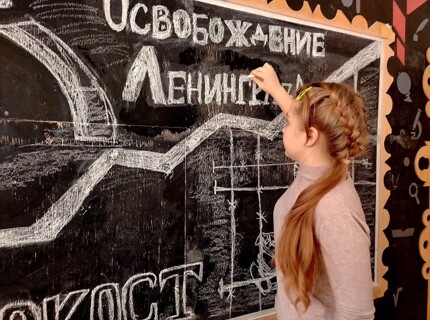 ОСВОБОЖДЕНИЕ
ЛЕНИНГРА
ОКОСТ